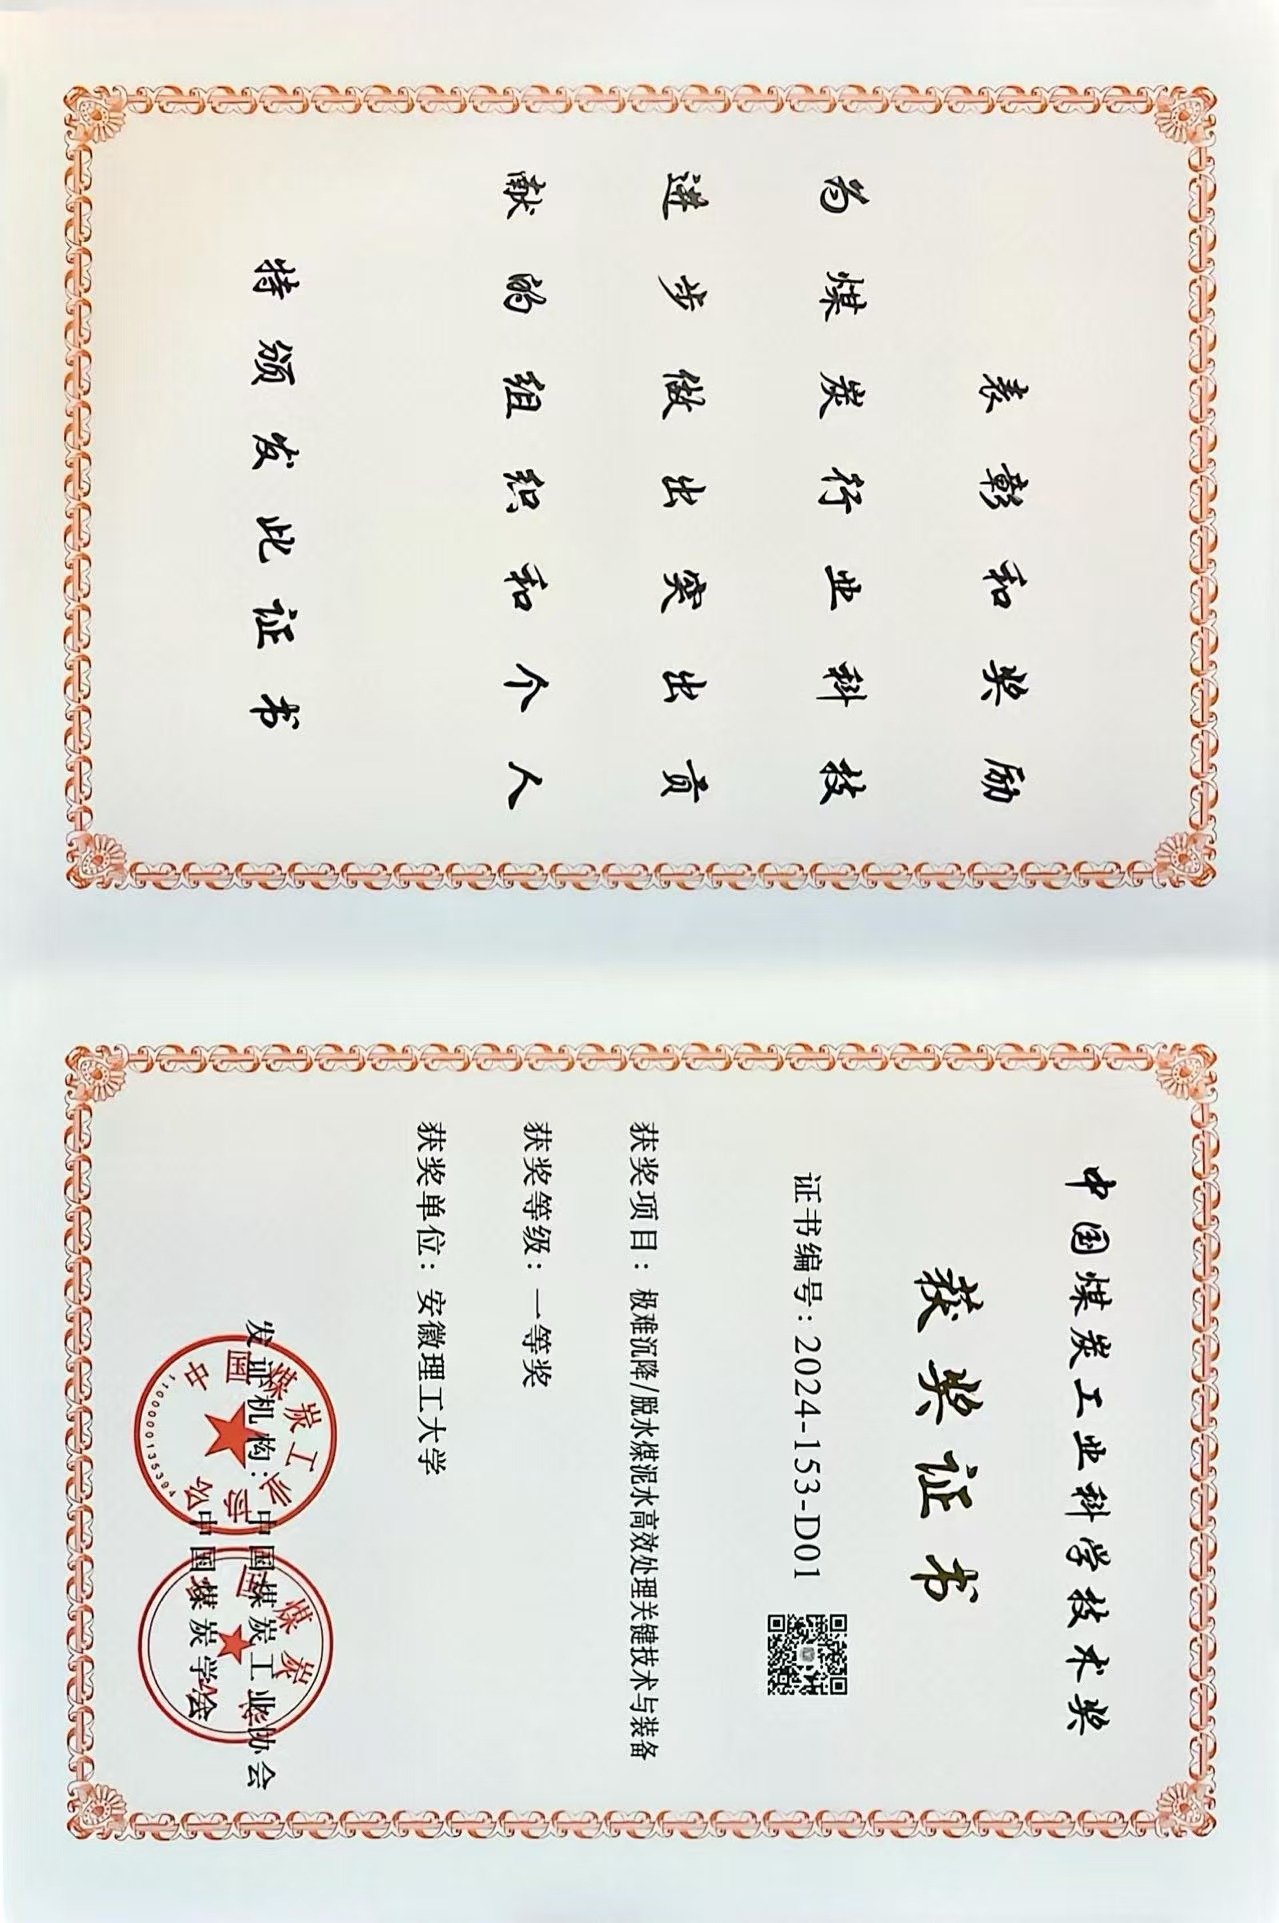 表彰和奖励
为煤炭行业科技
进步做出突出贡
献的组织和个人
特颁发此证书
中国煤炭工业科学技术奖
获奖证书
证书编号：2024-153-D01
获奖项目：极难沉降/脱水煤泥水高效处理关键技术与装备
获奖等级：一等奖
获奖单位：安徽理工大学
发证机构：中国煤炭工业协会
中国煤炭学会
中国煤炭工业协会
1100000135394